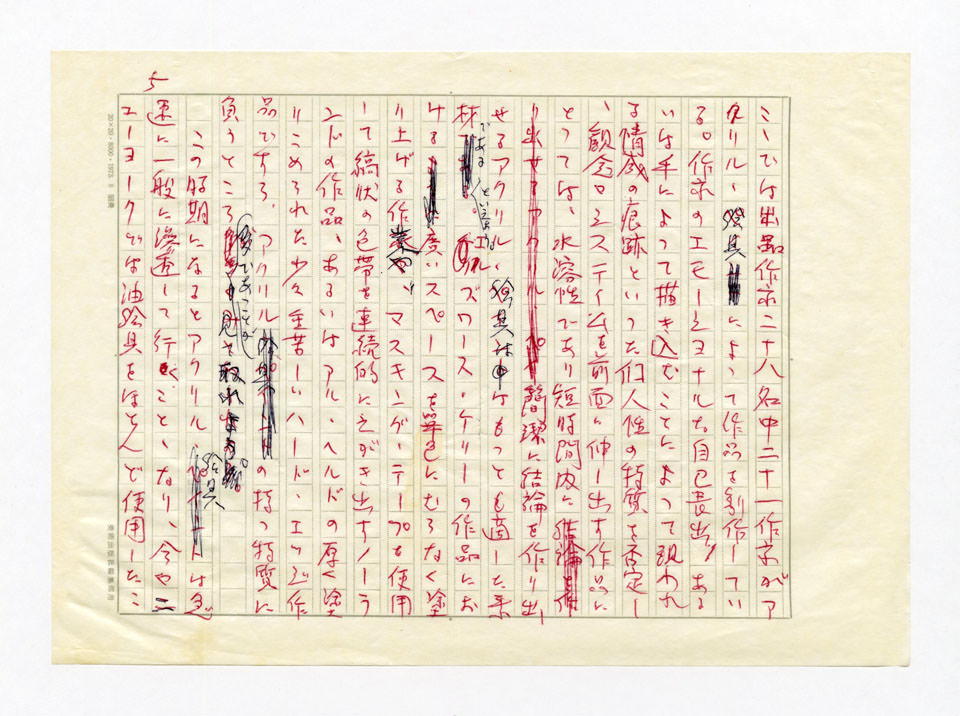 ミーでは出品作家二十八名中二十一作家がア
クリル、絵具によって作品を制作してい
る。作家のエモーショナルな自己表出、ある
いは手によって描き込むことによって現われ
る情感の痕跡といった個人性の特質を否定し
、観念のシステイムを前面に伸し出す作品に
とっては、水溶性であり短時間内に
簡潔に結論を作り出
せるアクリル、絵具はもっとも適した素
材であるといえよう。エルズワース・ケリーの作品にお
ける広いスペースを単色にむらなく塗
り上げる作業や、マスキング・テープを使用
して縞状の色帯を連続的にえがき出すノーラ
ンドの作品、あるいはアル・ヘルドの厚く塗
りこめられた少々重苦しいハード・エッジ作
品ですら、アクリルの持つ特質に
負うところ
この時期になるとアクリル、絵具は急
速に一般に浸透して行くこととなり、今や二
ューヨークでは油絵具をほとんど使用したこ
5
20×20